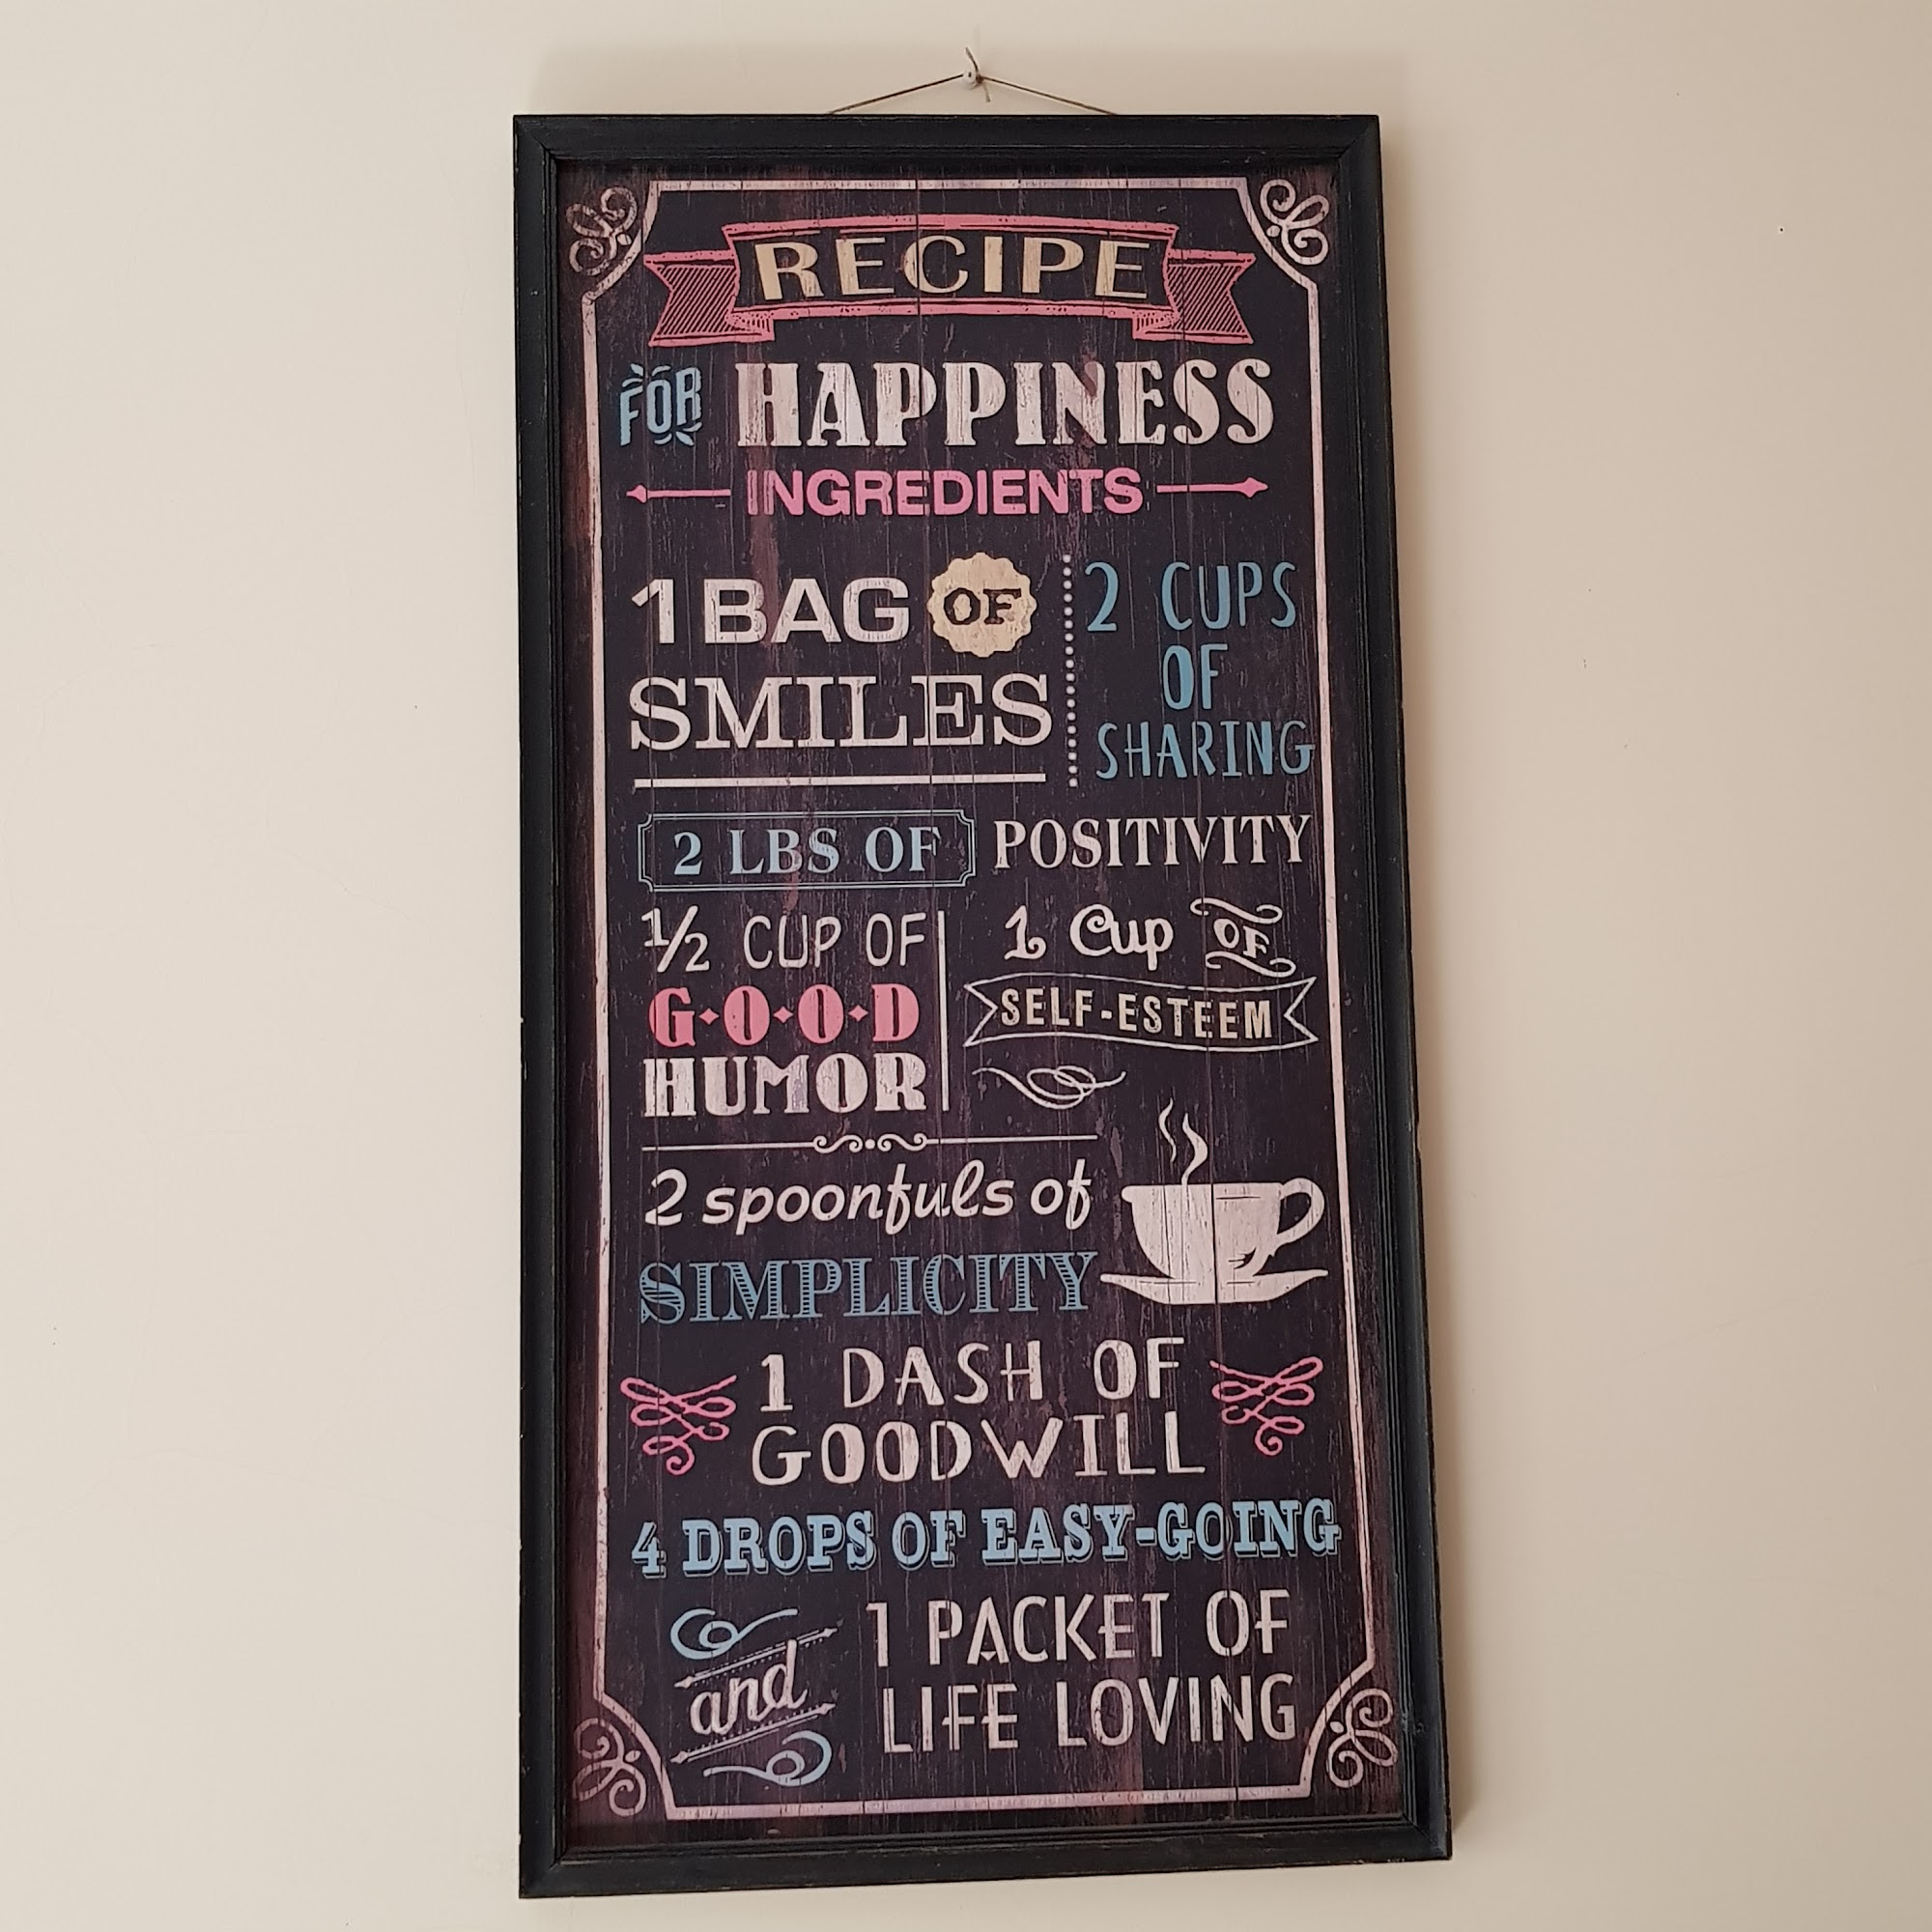 RECIPE
FOR HAPPINESS
INGREDIENTS
1 BAG OF
SMILES
2 CUPS
OF
SHARING
2 LBS OF POSITIVITY
½ CUP OF
G•O•O•D
HUMOR
1 Cup OF
SELF-ESTEEM
2 spoonfuls of
SIMPLICITY
1 DASH OF
GOODWILL
4 DROPS OF EASY-GOING
and
1 PACKET OF
LIFE LOVING